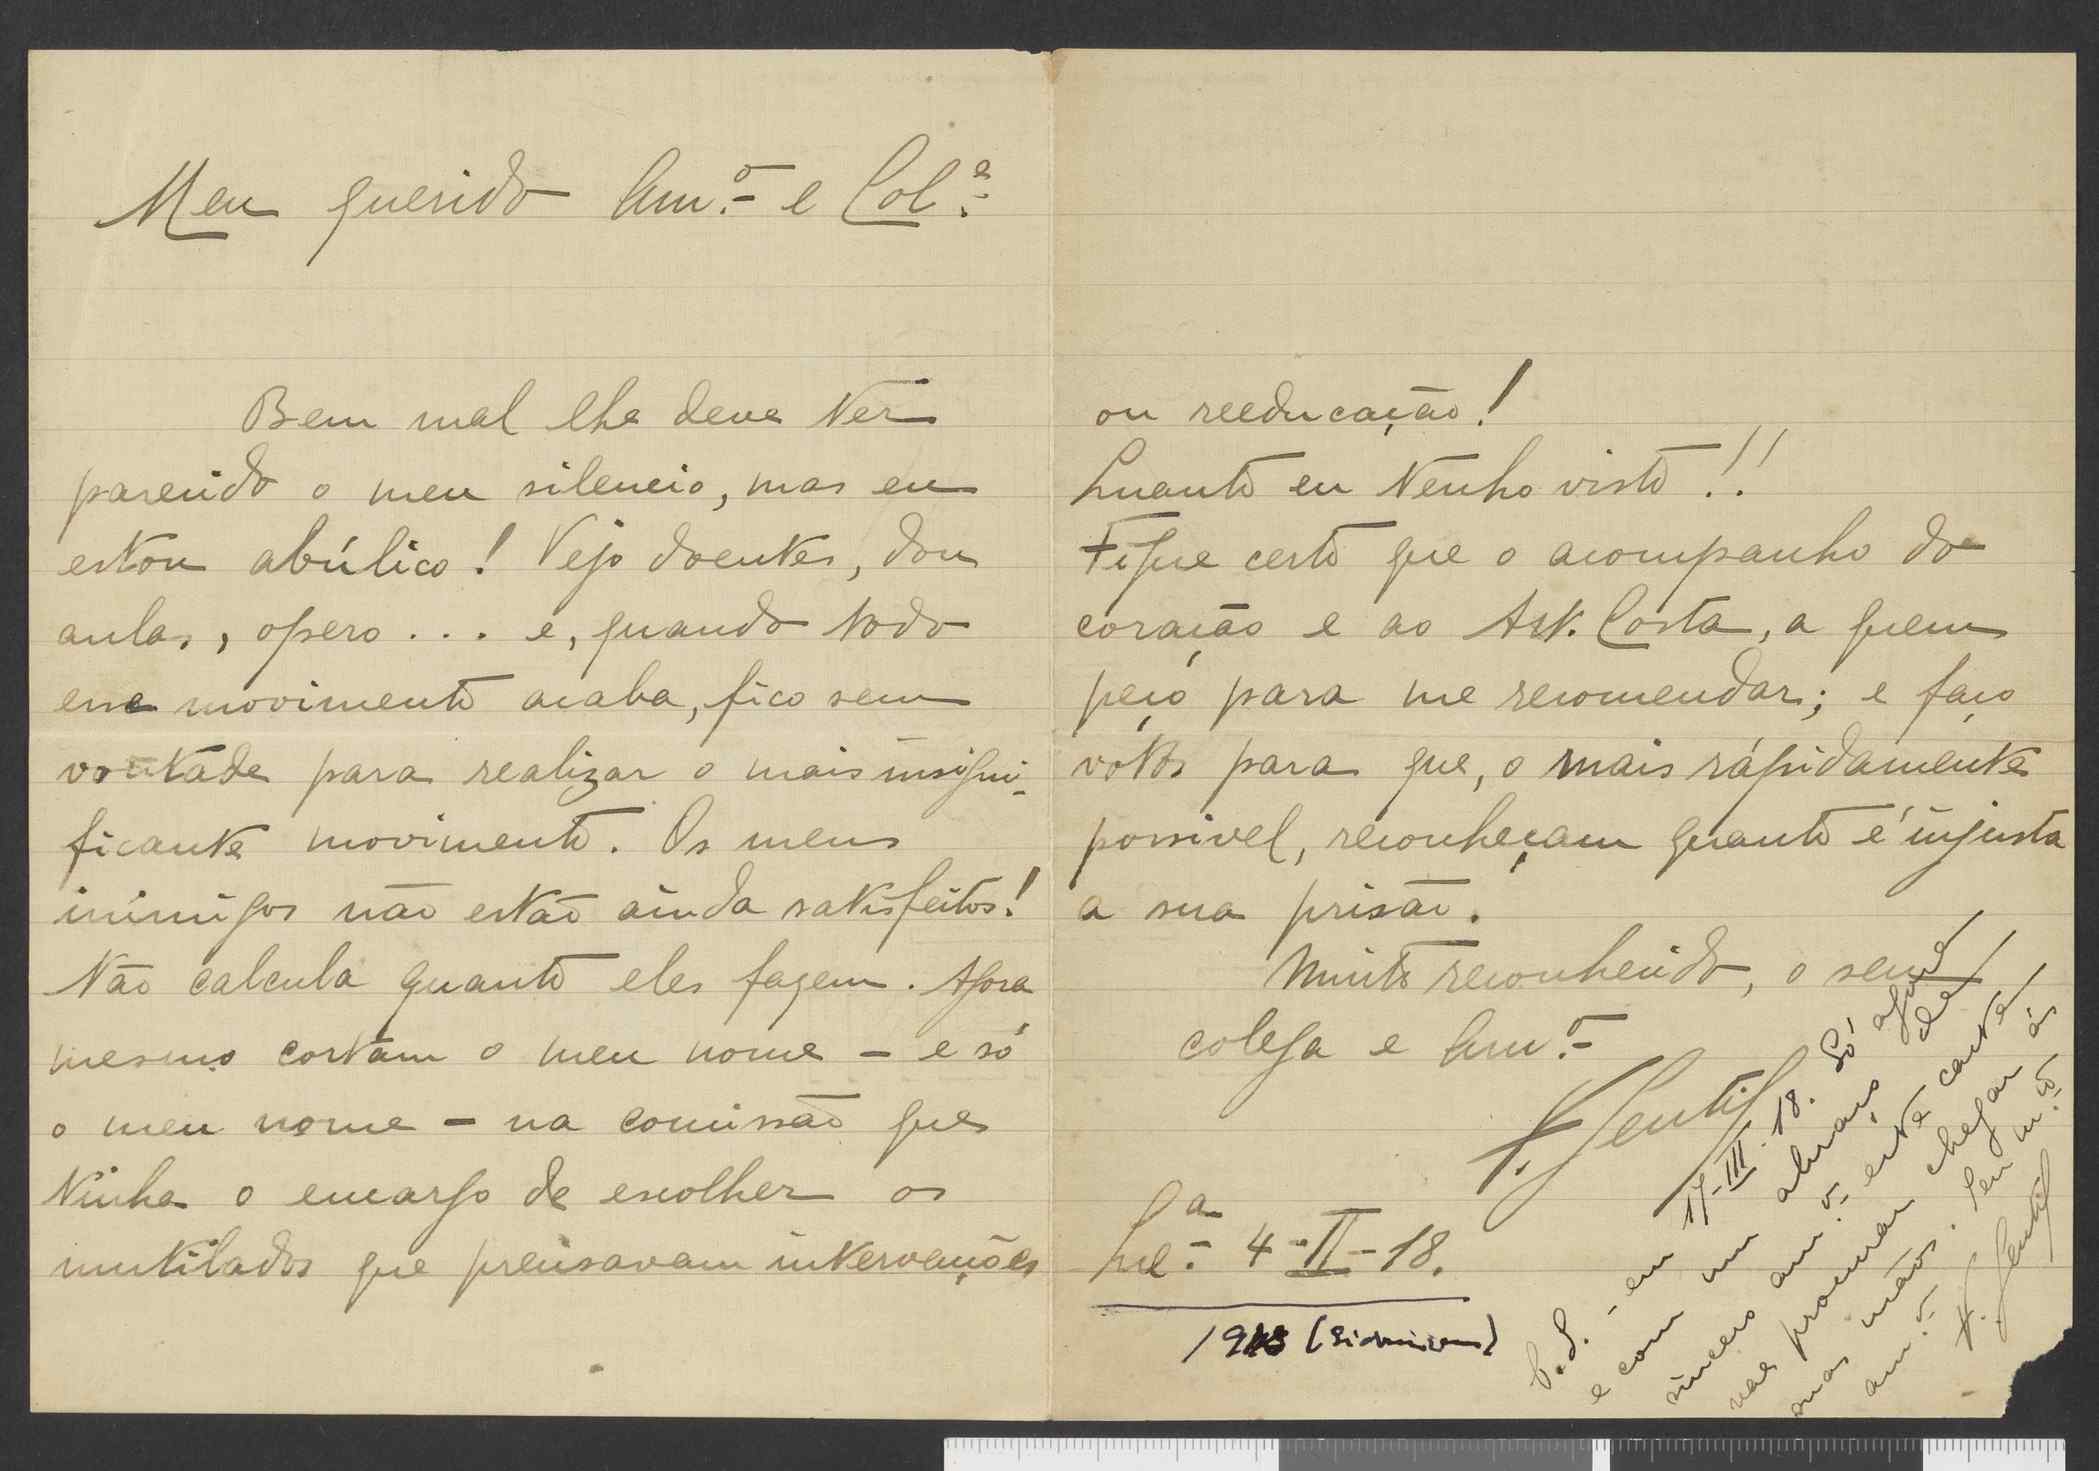 Meu querido Am.º e Col.ª
Bem mal lhe deve ter
parecido o meu silencio, mas eu
estou abúlico! Vejo doentes, dou
aulas, opero... e, quando todo
esse movimento acaba, fico sem
vontade para realizar o mais insigni-
ficante movimento. Os meus
inimigos não estão ainda satisfeitos!
Não calcula quanto eles fazem. Agora
mesmo cortam o meu nome - e só
o meu nome - na comissão que
tinha o encargo de escolher os
mutilados que precisavam intervenções
ou reeducação!
Quanto eu tenho visto!!
Fique certo que o acompanho do
coração e ao Art. Costa, a quem
peço para me recomendar; e faço
votos para que, o mais rápidamente
possivel, reconheçam quanto é injusta
a sua prisão.
Muito reconhecido, o seu
colega e Am.º
F. Gentil
Lx.ª 4-II-18.
1918 (Sidonismo)
P.S. - em 17-III-18. Só agora
e com um abraço de
sincero am.º esta carta
vae procurar chegar ás
suas mãos. Seu m.to
am.º
F. Gentil